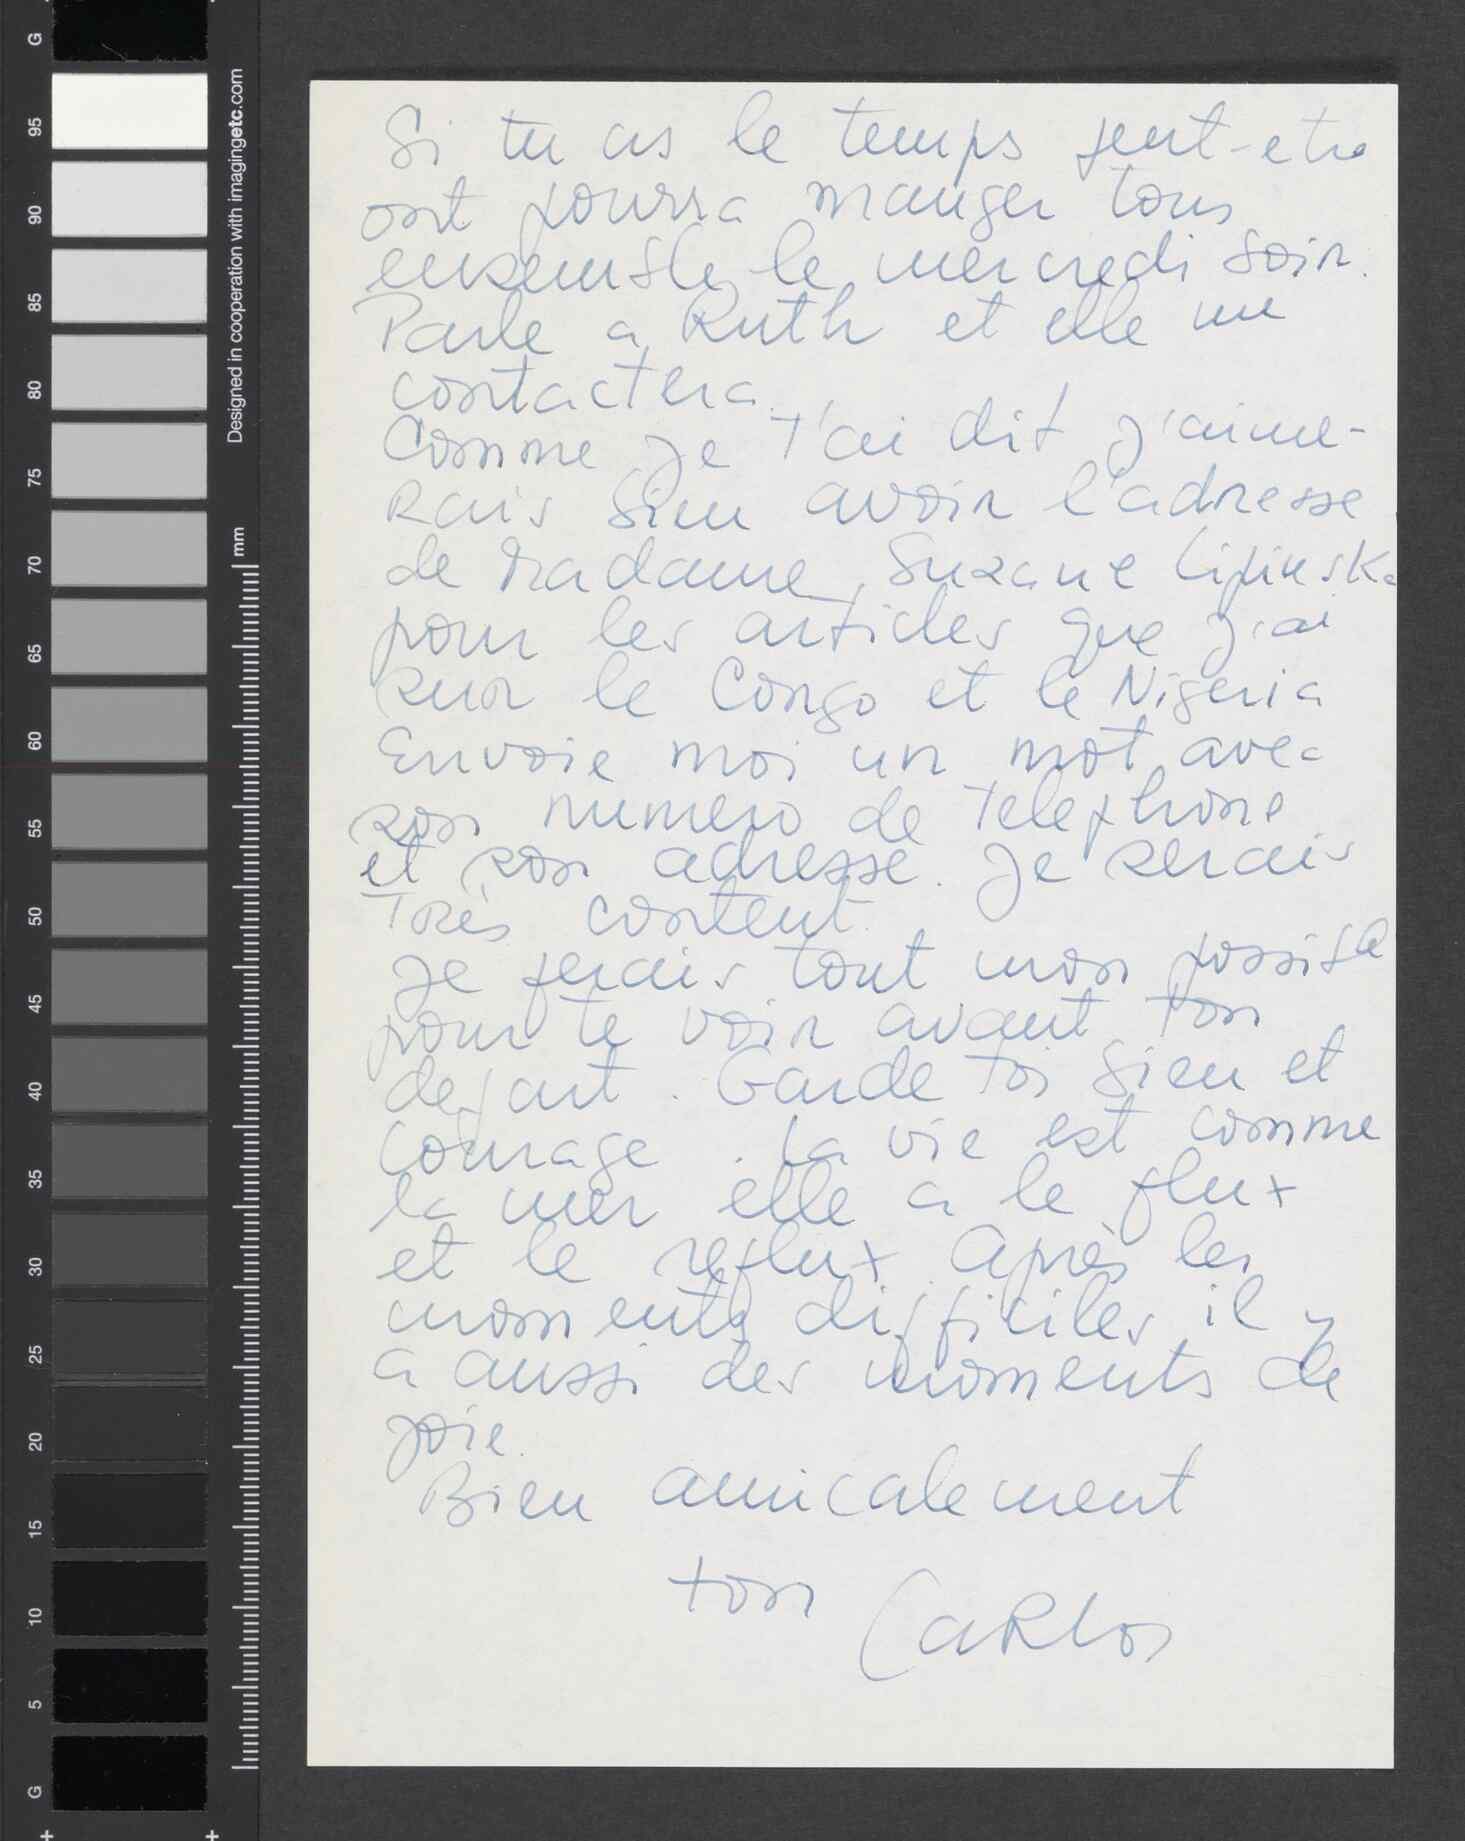 Si tu as le temps peut-etre
ont pourra manger tous
ensemble le mercredi soir.
Parle a Ruth et elle me
contactera.
Comme je t'ai dit j'aime-
rais bien avoir l'adresse
de Madame Suzane Lipinska
pour les articles que j'ai
sur le Congo et le Nigeria
Envoie moi un mot avec
son numero de telephone
et son adresse. Je serais
Très content.
Je ferais tout mon possible
pour te voir avant ton
depart. Garde toi bien et
courage. La vie est comme
la mer elle a le flux
et le reflux. Après les
moments difficiles il y
a aussi des moments de
joie.
Bien amicalement
ton Carlos
G
95
90
85
80
75
70
65
60
55
50
45
40
35
30
25
20
15
10
5
G
Designed in cooperation with imagingetc.com
mm